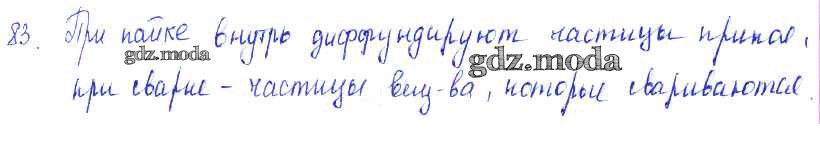 83. При пайке внутрь диффундируют частицы припоя,
gdz.moda
gdz.moda
при сварке - частицы вещ-ва, которые свариваются.